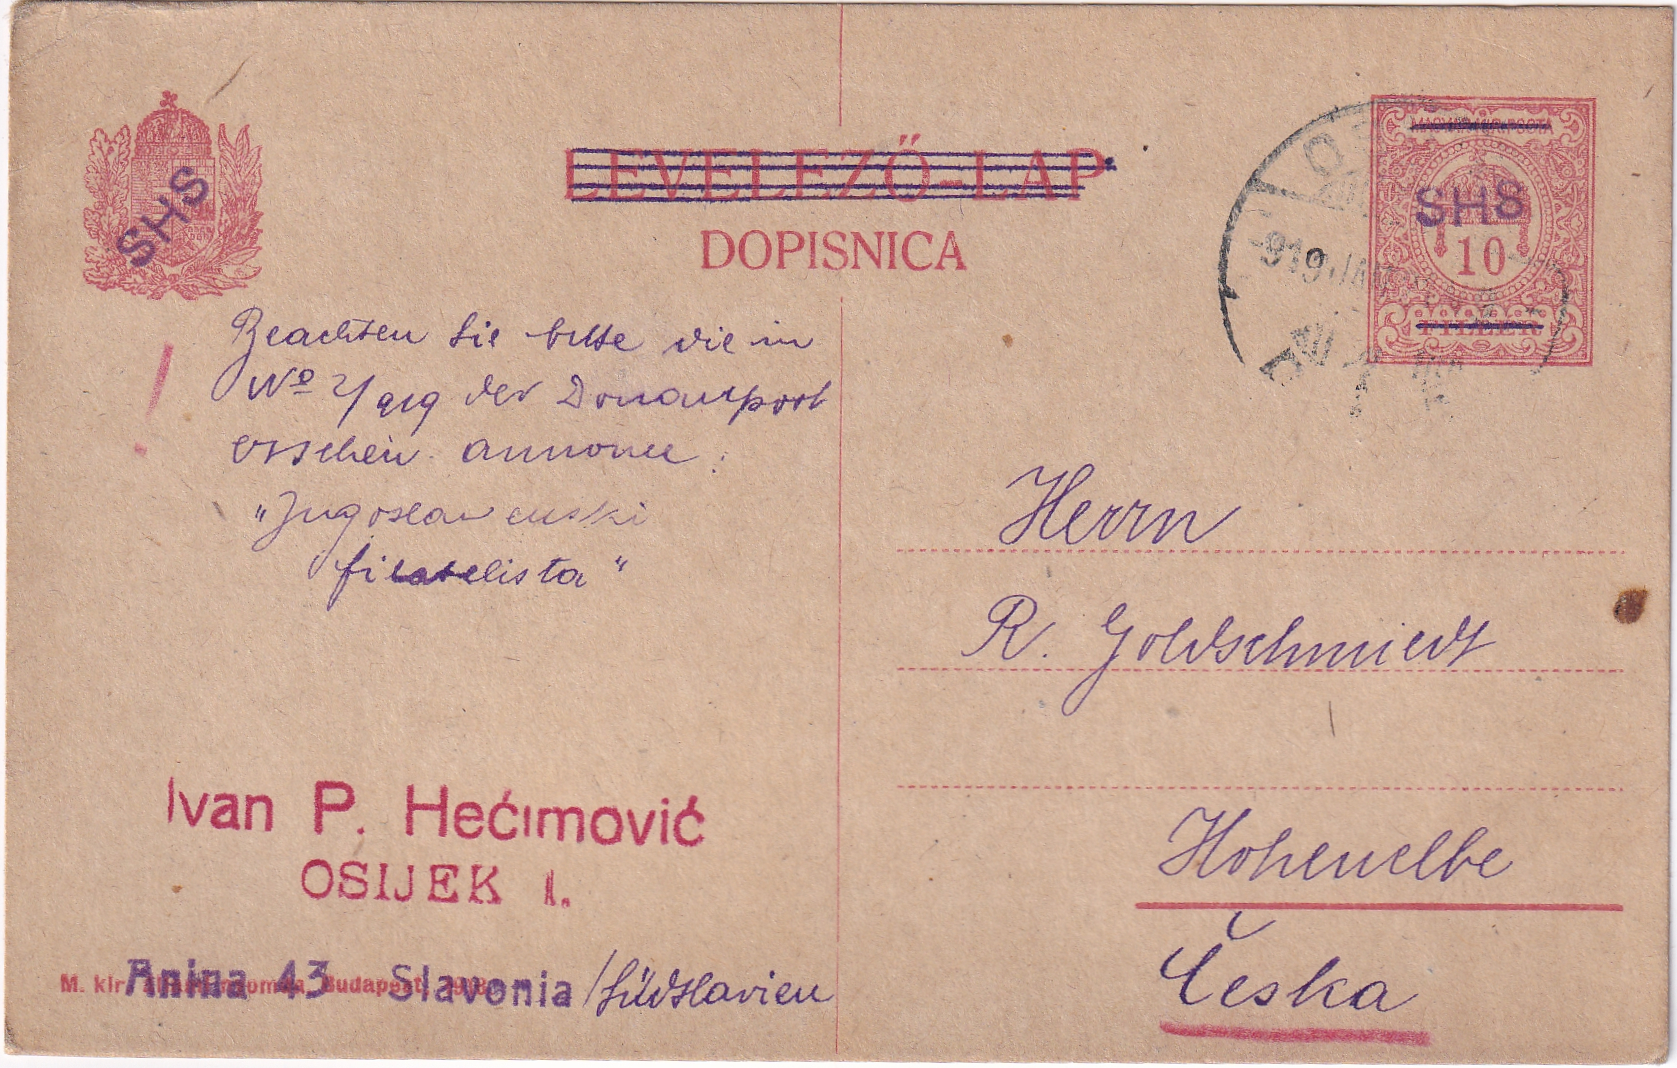 SHS
LEVELEZŐ-LAP
DOPISNICA
MAGYAR KIR. POSTA
SHS
10
FILLÉR
919 JAN
Beachten Sie bitte die in
No 2/919 der Donaupost
erschein. annonce:
"Jugoslavenski
filatelista"
Herrn
R. Goldschmiedt
Hohenelbe
Česka
Ivan P. Hećimović
OSIJEK I.
Anina 43 Slavonia /Südslavien
M. kir. Budapest.